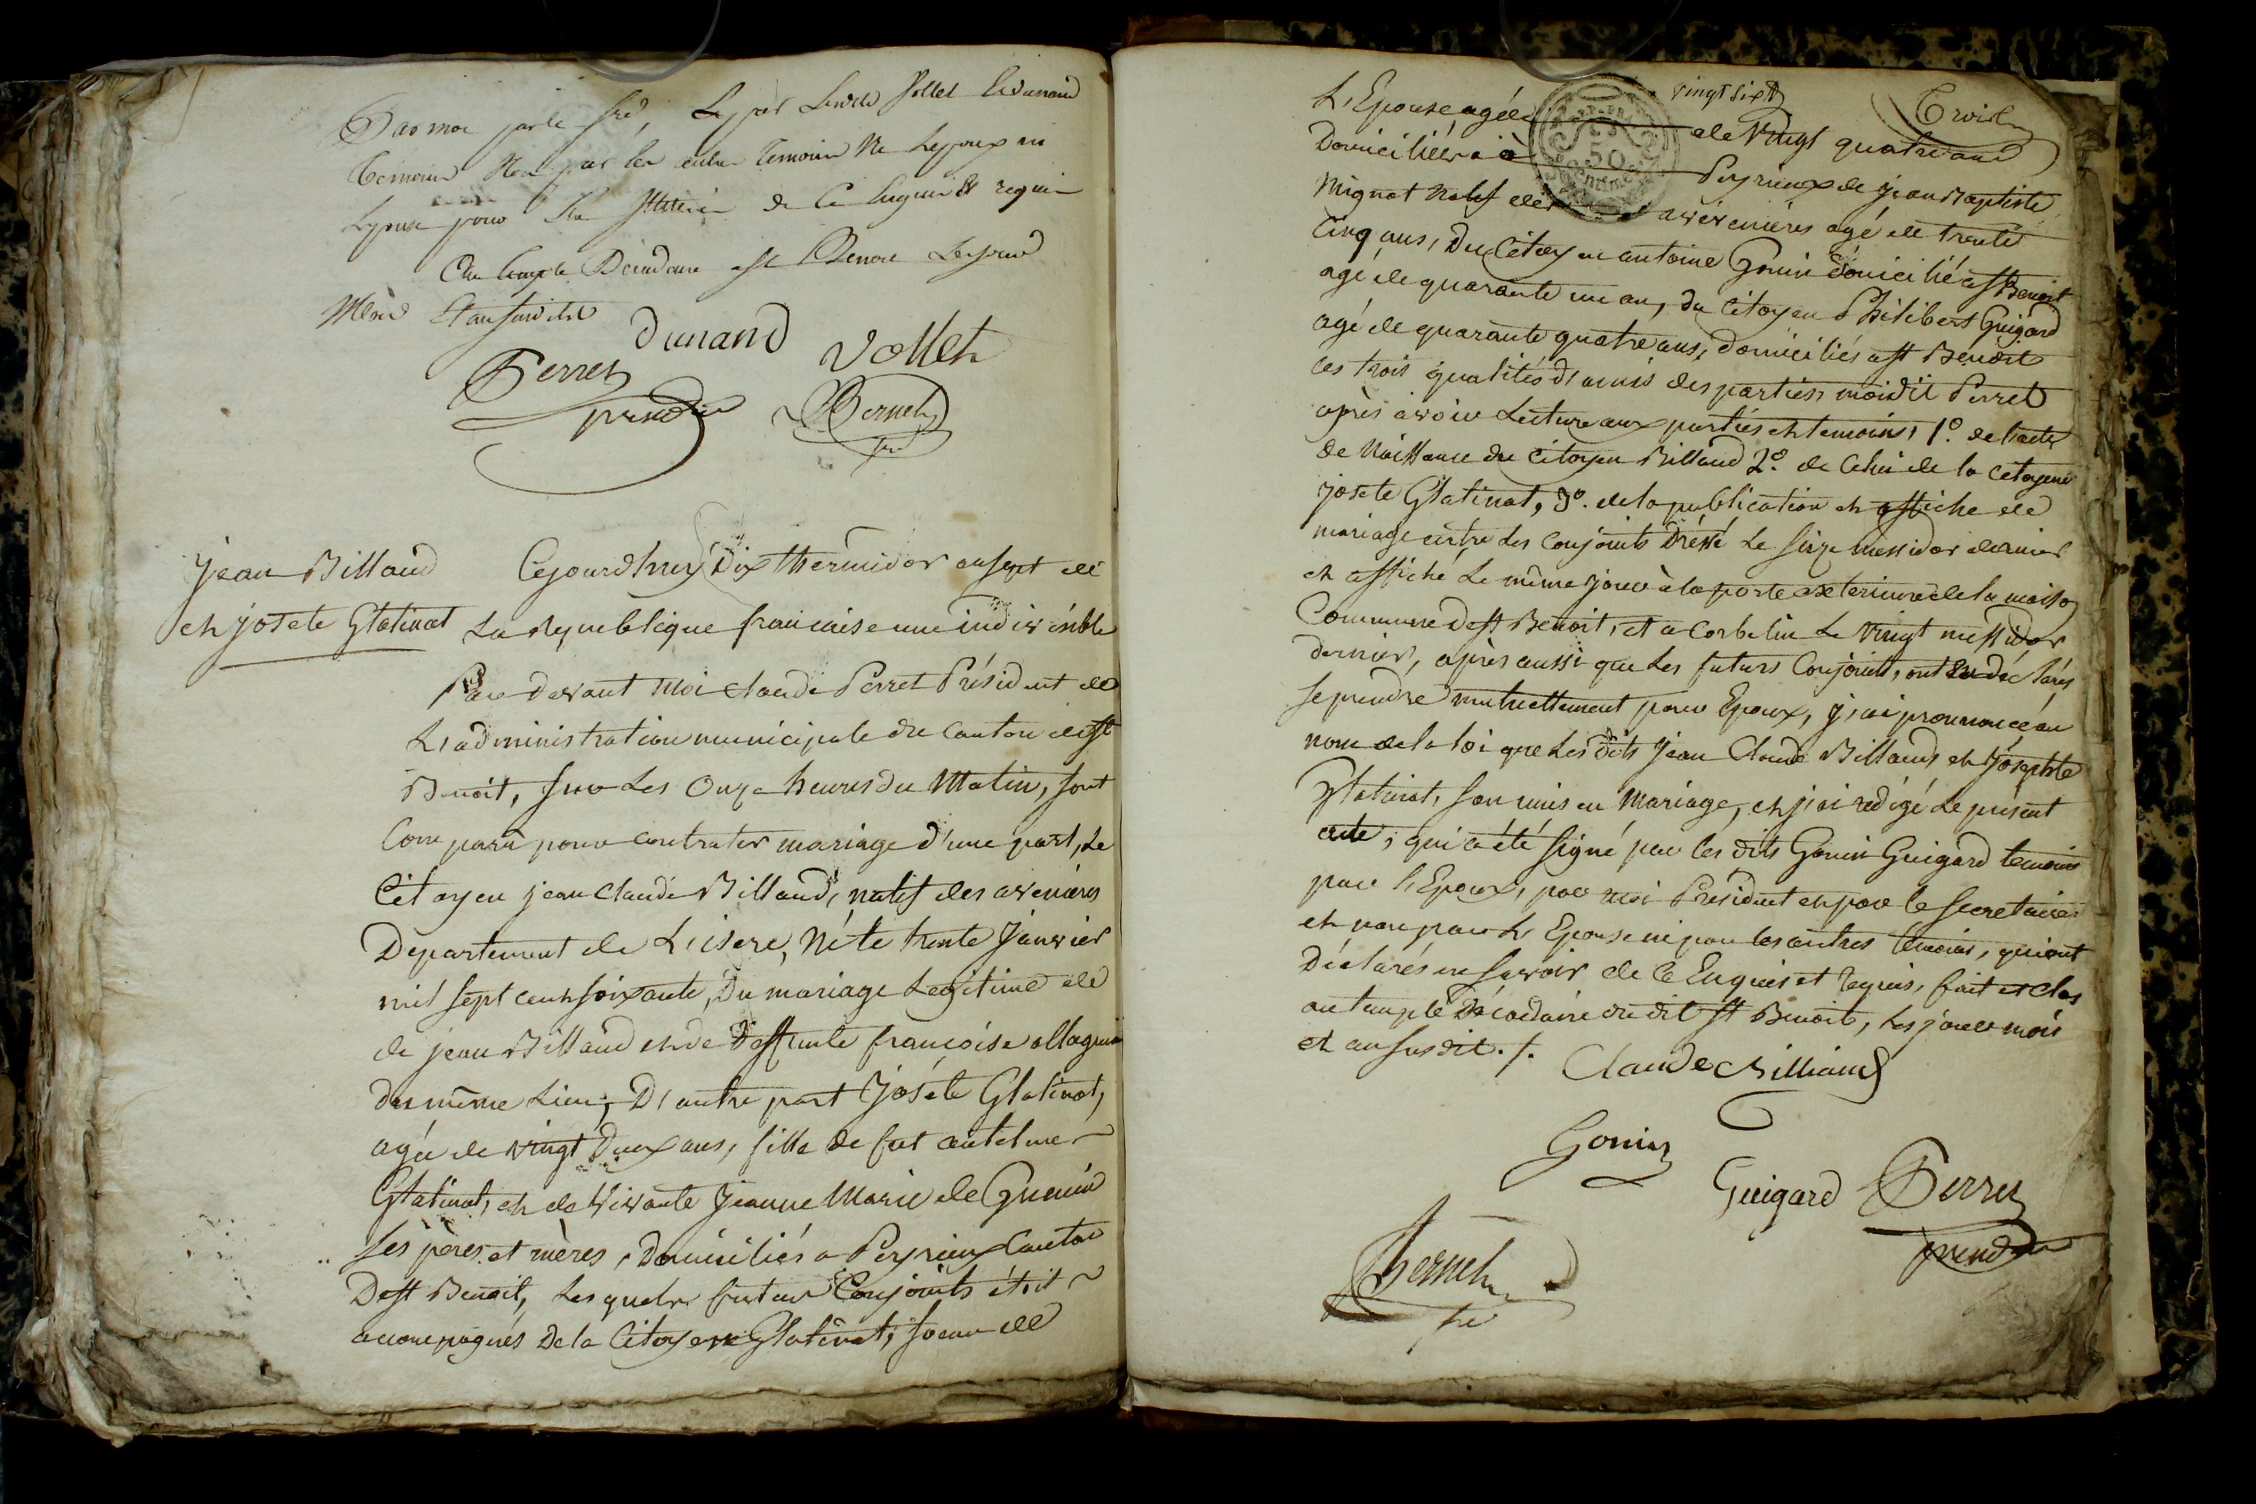 par moi par le sre, Lepor vollet et dunand
temoins non par les autres temoins ne Lepoux ni
Lepouse pour de ce enquis et requis
au temple Decadaire a st Benoit Les jour
Mois et an susdit
Dunand vollet
Perret
president Bernet
sre
jean Billaud
et josete Glatinat
Cejourdhuy Dix thermidor an sept de
La Republique francaise une indivisible
Par devant Moi claude Perret Président de
L'administration municipale du canton de st
Benoit, sur Les Onze heures du Matin, sont
Comparu pour contrater mariage d'une part, Le
Citoyen jean claude Billaud, natif des avenieres
Departement de L'isere, Né le trente Janvier
mil sept cent soixante, Du mariage Legitime de
de jean Billaud et de deffunte francoise allaguin
du même Lieu, D'autre part Joséte Glatinat,
agée de vingt deux ans, fille de fut antelme
Glatinat, et de vivante Jeanne Marie de Guenin
ses pères et mères, Domiciliés a Peyrieux Canton
De st Benoit, Les quels futurs Conjoints étoit
accompagnés De la Citoyene Glatinat, soeur de
vingt sixt
Trois
L'Epouse agée de vingt quatre ans
Domiciliée à Peyrieux de Jean Baptiste
50
Centimes
Mignot natif des avévenières agé de trente
Cinq ans, Du Citoyen antoine Gonin domicilié a st Benoit
agé de quarante un an, du Citoyen Philibert Guigard
agé de quarante quatre ans, domiciliés a st Benoit
ces trois qualités d'amis des parties, moi dit Perret
après avoir Lecture aux parties et temoins, 1o. de l'acte
de Naissance du Citoyen Billaud 2o. de Celui de la Citoyene
josete Glatinat, 3o. de la publication et affiche de
mariage entre Les Conjoints Dréssé Le seize messidor dernier
et affiché Le même jour à la porte exterieure de la maison
Commune de st Benoit, et a Corbelin Le vingt messidor
dernier, après aussi que Les futurs Conjoints, ont déclarés
se prendre mutuellement pour Epoux, j'ai prononcé au
nom de la loi que Les dits Jean Claude Billaud et Joséphte
Glatinat, son unis en Mariage, et j'ai rédigé Le présent
acte, qui a été signé par les dits Gonin Guigard temoins
par l'Epoux, par moi Président et par le secretaire
et non par L'Epouse ni par les autres temoins, qui ont
Déclarés ne savoir de ce Enquis et requis, fait et clos
au temple Décadaire du dit st Benoit, Les jour mois
et an susdit ./.
Claude Billiaud
Gonin
Guigard Perret
president
Bernet
sre